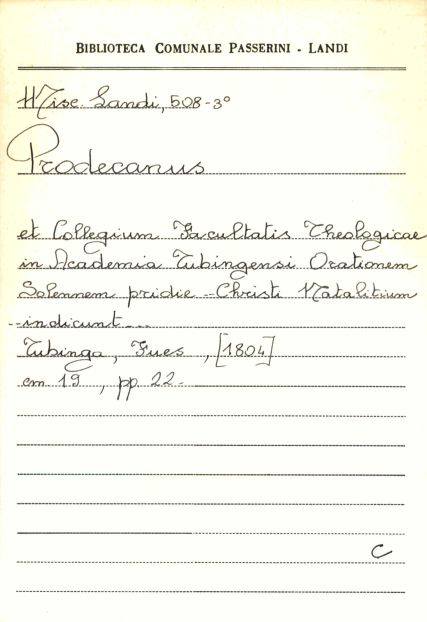 BIBLIOTECA COMUNALE PASSERINI - LANDI
Misc. Landi, 508-3°
Prodecanus
et Collegium Facultatis Theologicae
in Academia Tubingensi Orationem
Solennem pridie - Christi Natalitium
- indicunt...
Tubinga, Fues, [1804]
cm 19, pp. 22.
C